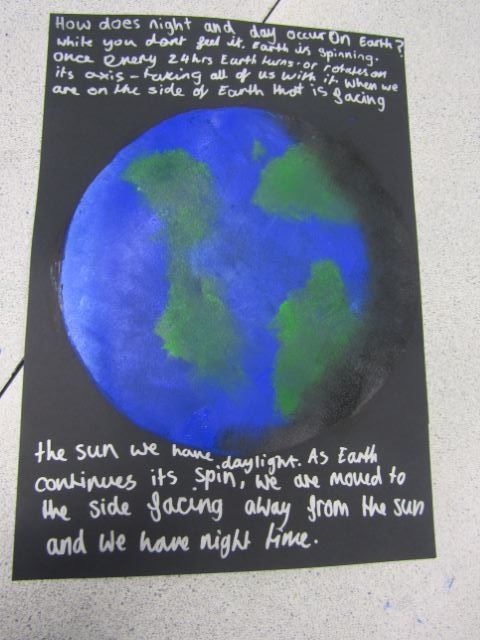 How does night and day occur On Earth?
While you dont feel it. Earth is spinning.
Once every 24hrs Earth turns-or rotates on
its axis-taking all of us with it. When we
are on the side of Earth that is facing
the sun we have daylight. As Earth
continues its spin, we are moved to
the side facing away from the sun
and we have night time.